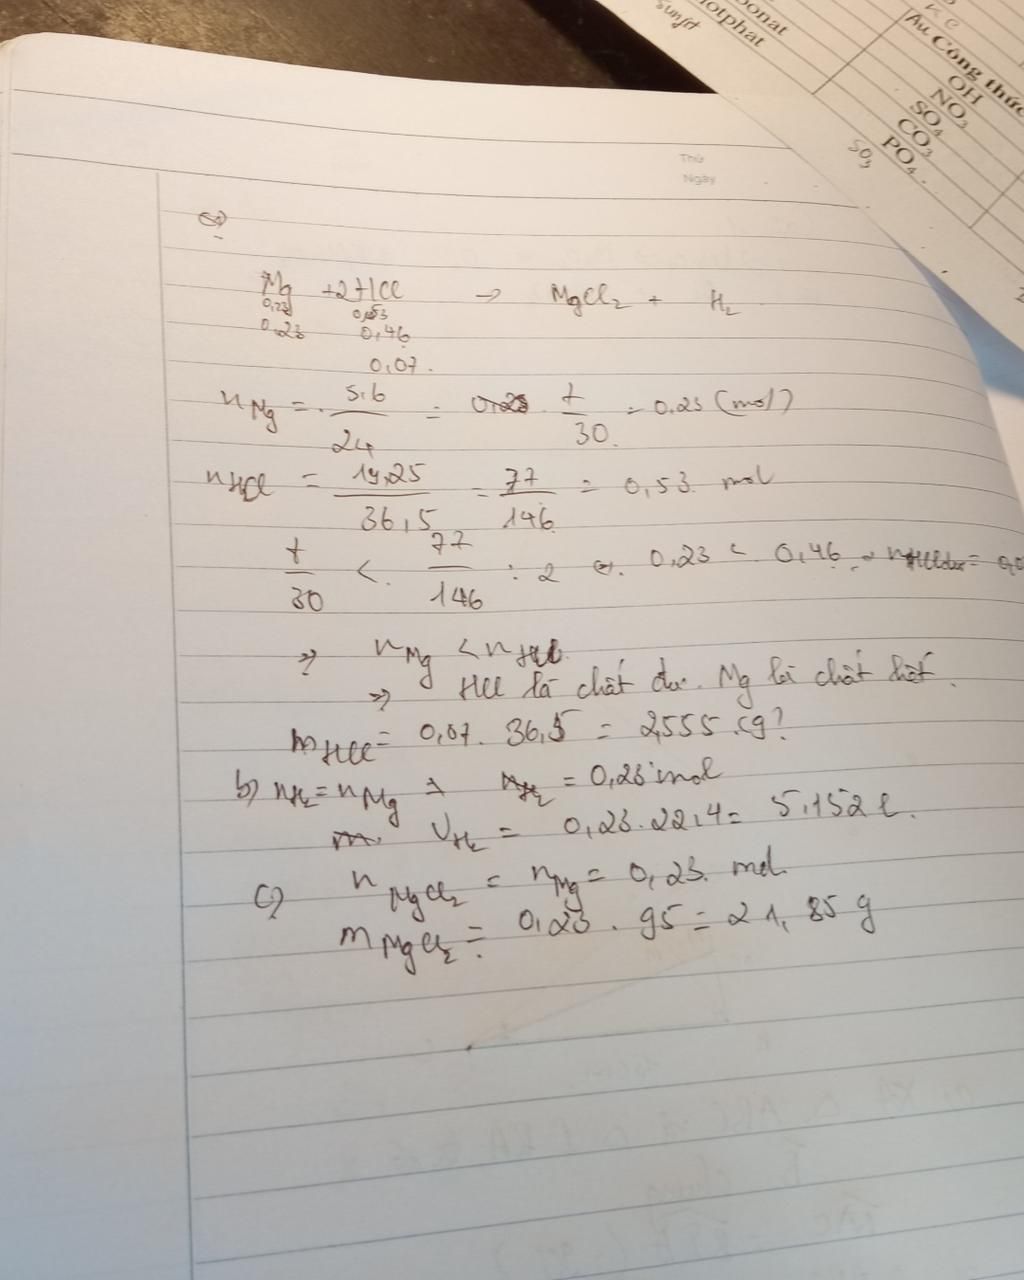 Sunfit
onat
otphat
Au Công thức
OH
NO₃
SO₄
CO₃
PO₄
SO₃
Thứ
Ngày
a)
Mg +2HCl → MgCl₂ + H₂
0,23 0,53
0,23 0,46
0,07.
nMg = 5,6/24 = 7/30 = 0,23 (mol)
nHCl = 19,25/36,5 = 77/146 = 0,53 mol
7/30 < 77/146 : 2 0,23 < 0,46
⇒ nMg < nHCl
⇒ HCl là chất dư. Mg là chất hết.
mHCl = 0,07. 36,5 = 2,555 (g)
b) nH₂ = nMg ⇒ nH₂ = 0,23 mol
VH₂ = 0,23.22,4 = 5,152 l.
c) nMgCl₂ = nMg = 0,23. mol.
mMgCl₂ = 0,23 . 95 = 21,85 g